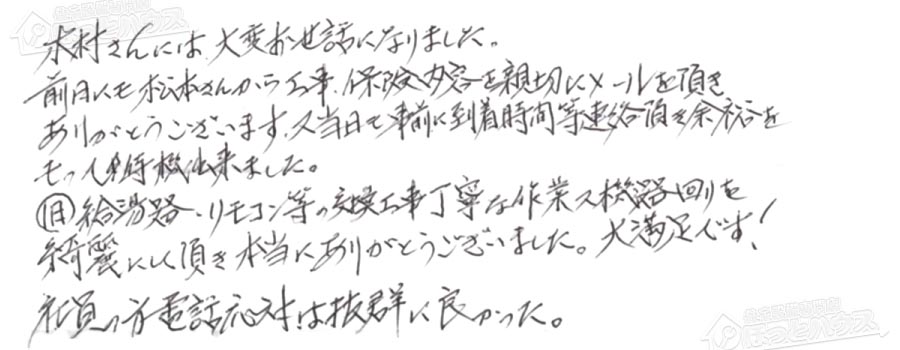 木村さんには大変お世話になりました。
前日にも松本さんから工事、保険内容を親切にメールを頂き
ありがとうございます。又当日も事前に到着時間等連絡頂き余裕を
もって待機出来ました。
旧給湯路・リモコン等の交換工事丁寧な作業又機路回りを
綺麗にして頂き本当にありがとうございました。大満足です!
社員の方電話応対は抜群に良かった。